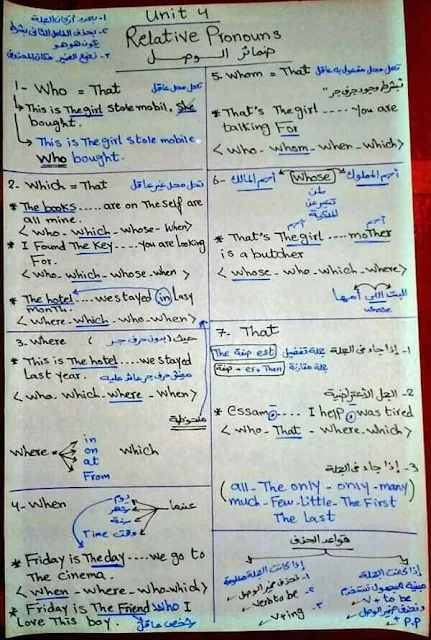 Unit 4
Relative Pronouns
ضمائر الوصل
١- بعد أركان الجملة
٢- يحذف الفاعل الثاني بشرط
يكون هو هو
٣- نضع الضمير مكان المحذوف
1- Who = That تحل محل عاقل
This is The girl stole mobil, she
bought.
This is The girl stole mobile
Who bought.
2. Which = That تحل محل غير عاقل
* The books ..... are on The self are
all mine.
< who - which - whose - when >
* I Found The Key ..... you are looking
For.
< who - which - whose - when >
* The hotel .... we stayed in lasy
month.
< where - which - who - when >
3. Where حيث (بدون حرف جر)
* This is The hotel .... we stayed
Last year. مفيش حرف جر عائد عليه
< who. which - where - when >
ملحوظة
where = in
on
at
From
which
4- When عندما
يوم
شهر
سنة
Time وقت
* Friday is The day .... we go to
The cinema.
< when - where - who - which >
* Friday is The Friend who I
Love This boy. شخص عاقل
5. Whom = That تحل محل مفعول به عاقل
"بشرط وجود حرف جر"
* That's The girl .... you are
talking For
< who - whom - when - which >
6- اسم المالك whose اسم المملوك
تعبر عن
الملكية
* That's The girl .... moTher
is a butcher
< whose - who - which - where >
البنت اللي أمها
whose
7- That
١- إذا جاء في الجملة
The صفة est جملة تفضيل
صفة + er. Than جملة مقارنة
٢- الجمل الاعتراضية
* essam .... I help, was tired
< who - That - where - which >
٣- إذا جاء في الجملة
( all - The only - only - many
much - Few - Little - The First
The Last )
قواعد الحذف
إذا كانت الجملة
١- نحذف ضمير الوصل
verb to be
٢-
V+ing
إذا كانت الجملة
مبنية للمجهول نستخدم
V. to be
ونحذف ضمير الوصل
+ P.P